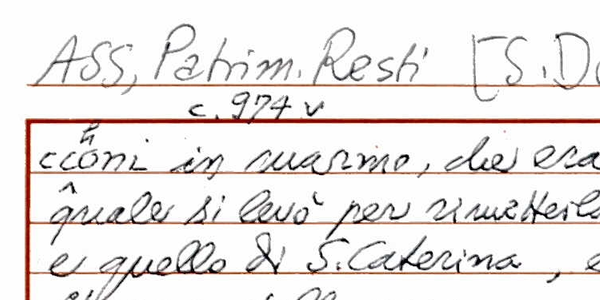 ASS, Patrim. Resti [S. D
c. 974 v
ccōni in marmo, che era
quale si levò per rimetterl
e quello di S. Caterina, e